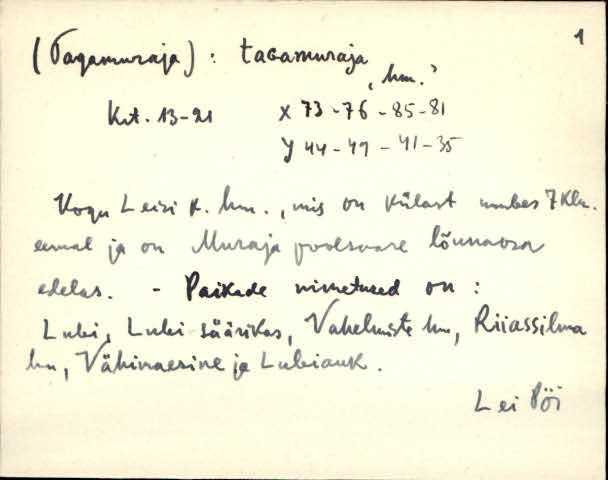 1
(Tagamuraja) : taGamuraja „hm."
Krt. 13-21 X 73-76-85-81
Y 44-49-41-35
Kogu Leisi k. hm., mis on külast umbes 7 klm.
eemal ja on Muraja poolsaare lõunaosa
edelas. - Paikade nimetused on :
Lubi, Lubi säärikas, Vahelmiste hm, Riiassilma
hm, Vähinaesine ja Lubiauk.
Lei Pöi